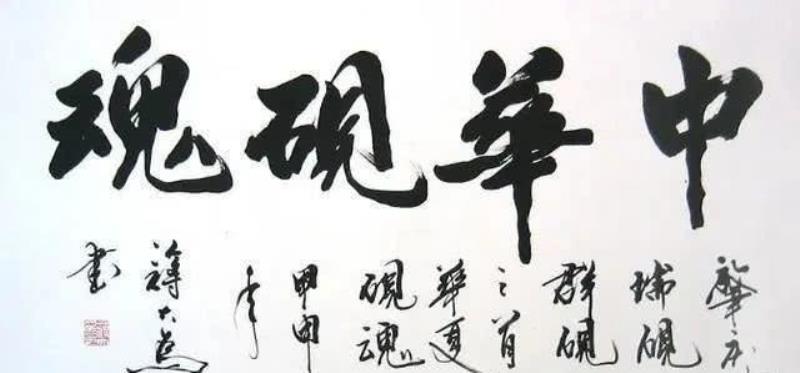 中華硯魂
肇庆
端硯
群硯
之首
華夏
硯魂
甲申
年
書